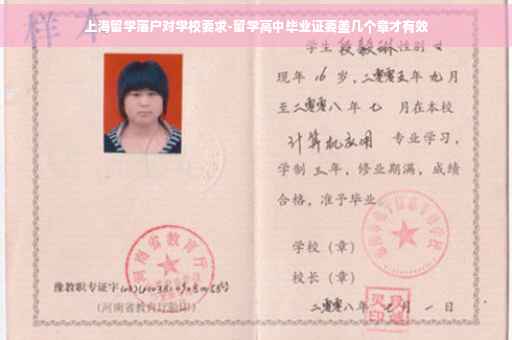 样本
上海留学落户对学校要求-留学高中毕业证要盖几个章才有效
学生 段毅琳 性别 女
现年 16 岁，二零零五年 九月
至二零零八年 七 月在本校
计算机应用 专业学习，
学制 三年，修业期满，成绩
合格，准予毕业。
学校（章）
校长（章）
二零零八年 七月 一 日
河南省教育厅
豫教职专证字
（河南省教育厅验印）